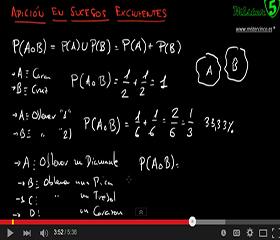 ADICIÓN EN SUCESOS EXCLUYENTES
5
P(A o B) = P(A) ∪ P(B) = P(A) + P(B)
A
B
→ A = Cara
→ B = Cruz
P(A o B) = 1/2 + 1/2 = 1
→ A = Obtener "1"
→ B = " "2"
P(A o B) = 1/6 + 1/6 = 2/6 = 1/3 33,33%
→ A: Obtener un Diamante
P(A o B) =
→ B: Obtener una Pica
→ C: " un Trebol
→ D: un Corazon
3:52 / 5:38